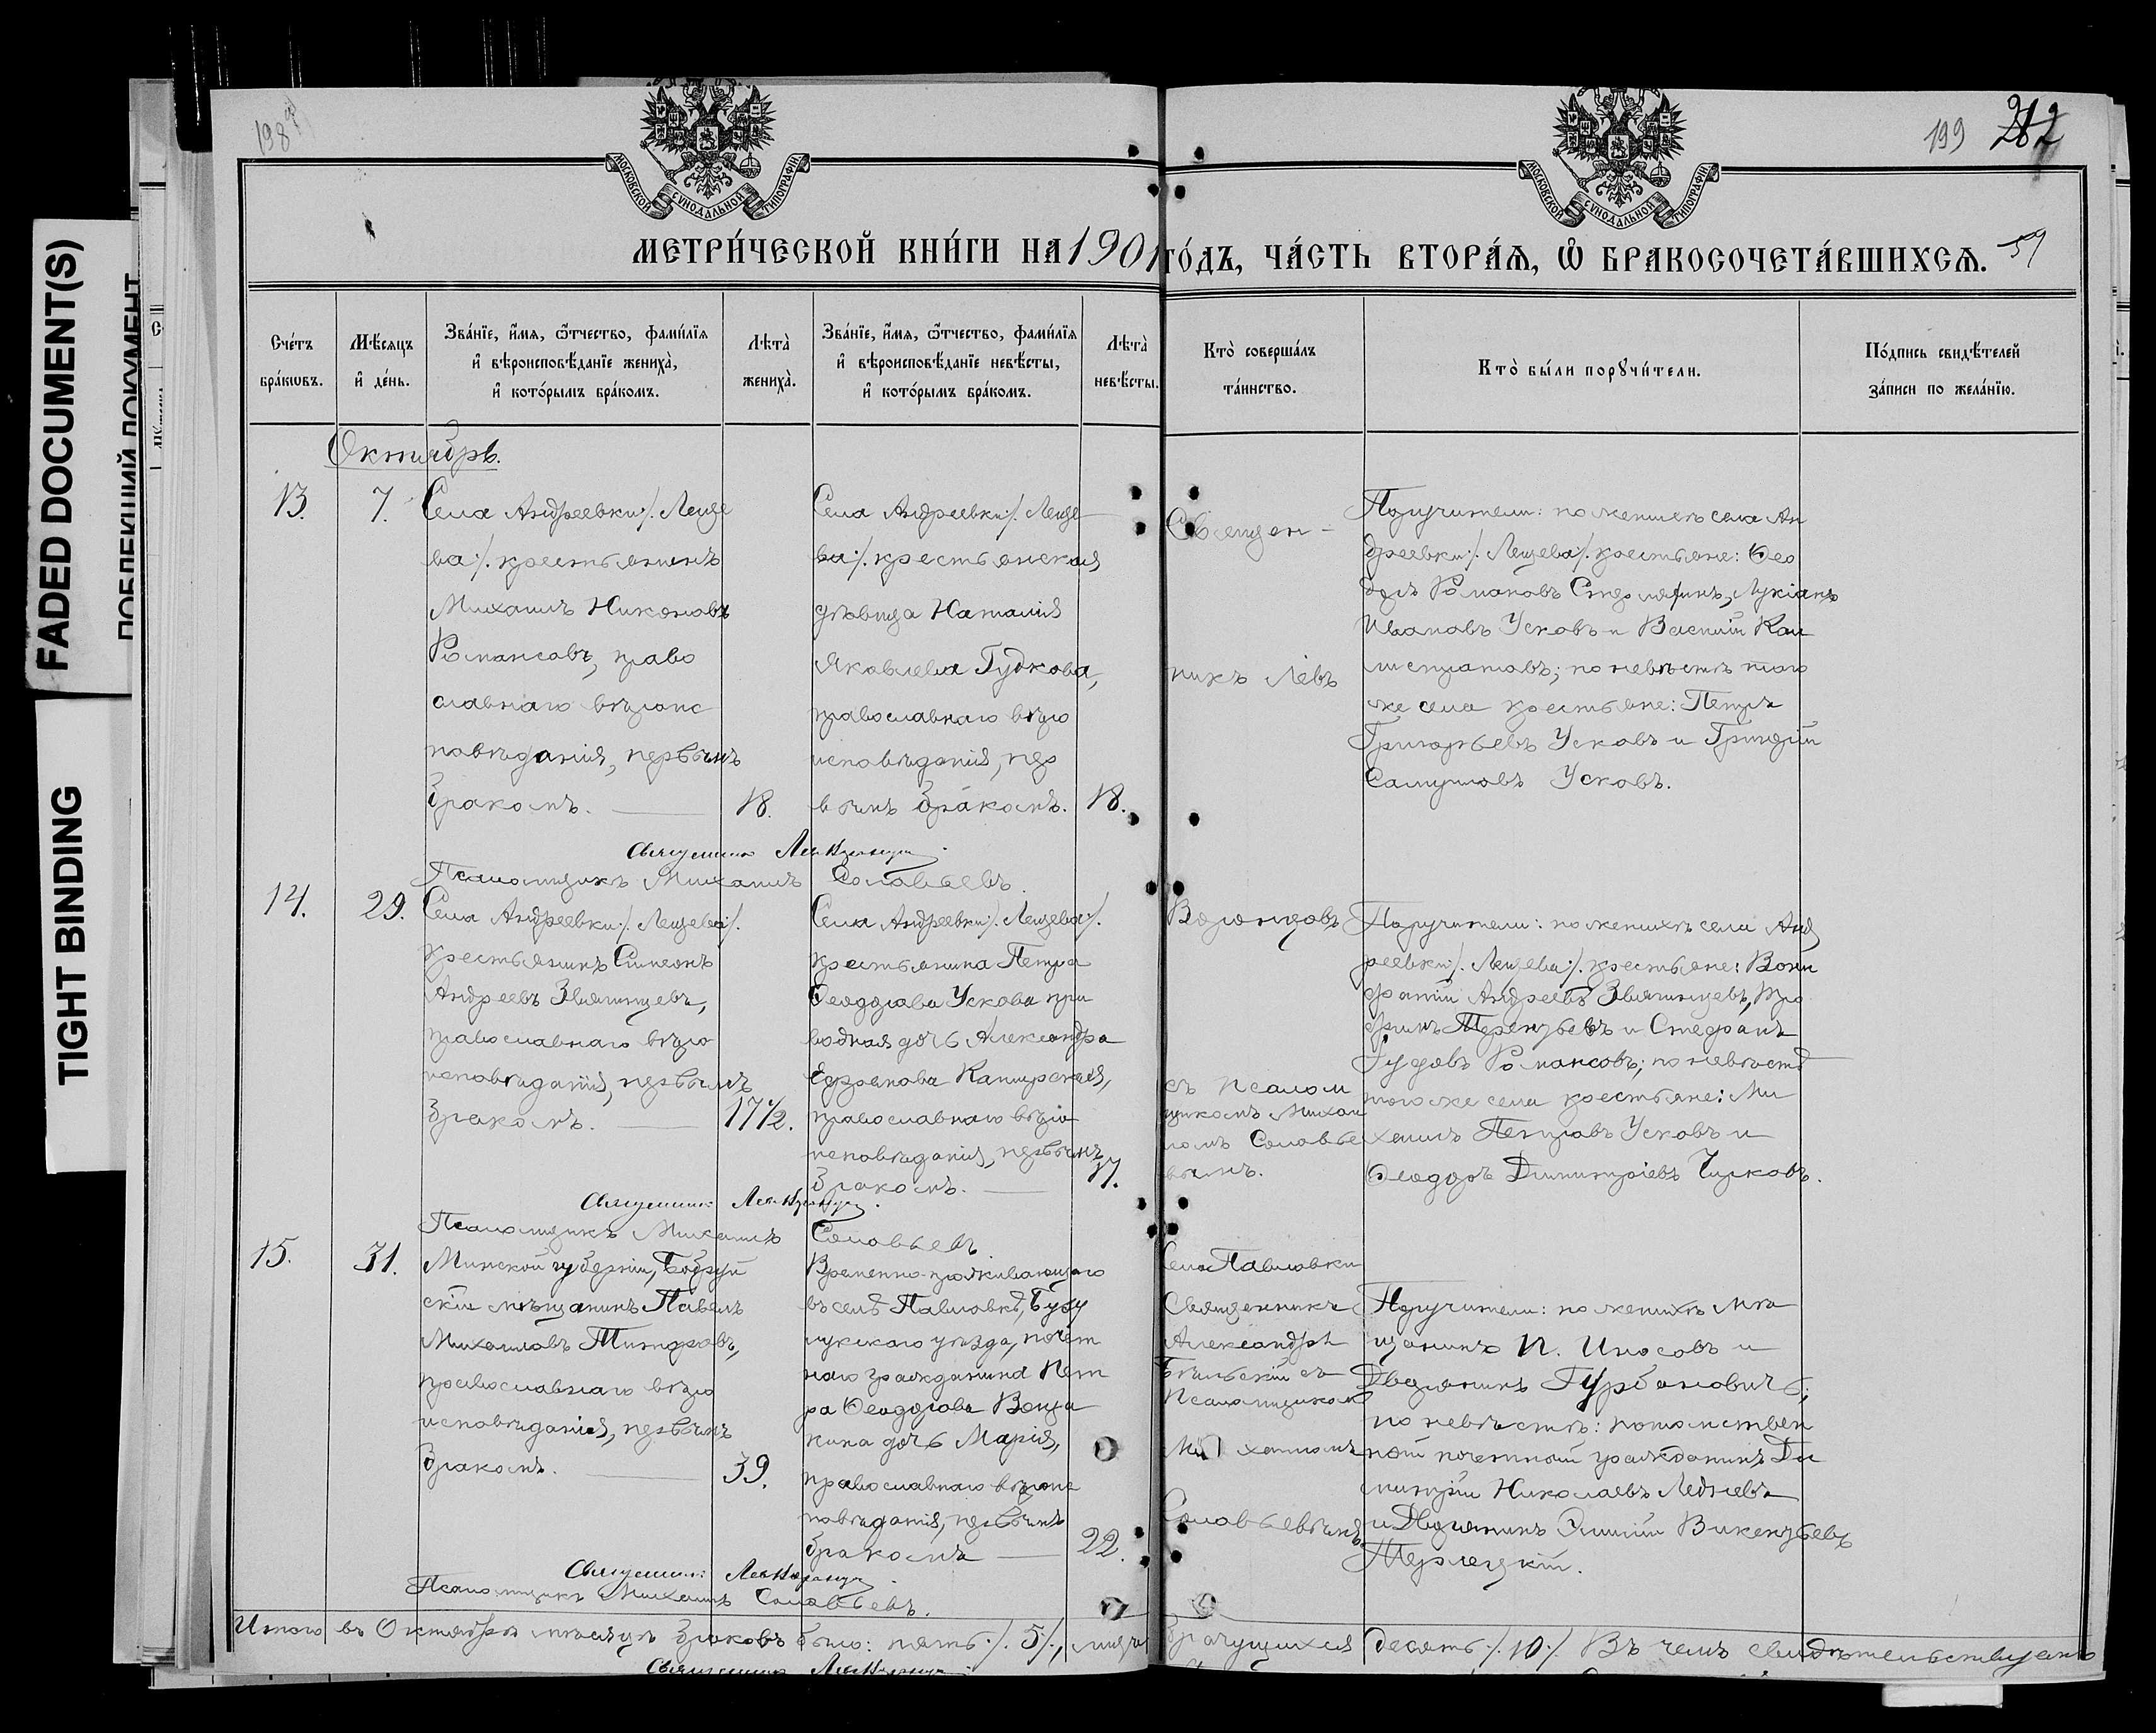 FADED DOCUMENT(S)
TIGHT BINDING
198
199
МОСКОВСКОЙ СѴНОДАЛЬНОЙ ТИПОГРАФІИ
МОСКОВСКОЙ СѴНОДАЛЬНОЙ ТИПОГРАФІИ
МЕТРИ́ЧЕСКОЙ КНИ́ГИ НА 1901 ГО́ДЪ, ЧА́СТЬ ВТОРА́Я, Ѡ БРАКОСОЧЕТА́ВШИХСЯ.
Сче́тъ
бра́кѡвъ.
Мѣ́сяцъ
и҆ де́нь.
Зва́нїе, и҆́мя, ѻ҆́тчество, фами́лїя
и҆ вѣроисповѣ́данїе жениха̀,
и҆ кото́рымъ бра́комъ.
Лѣта̀
жениха̀.
Зва́нїе, и҆́мя, ѻ҆́тчество, фами́лїя
и҆ вѣроисповѣ́данїе невѣ́сты,
и҆ кото́рымъ бра́комъ.
Лѣта̀
невѣ́сты.
Кто̀ соверша́лъ
та́инство.
Кто̀ бы́ли порꙋчи́тели.
По́дпись свидѣ́телей
за́писи по жела́нїю.
Октябрь.
13.
7.
Села Андреевки /. Леще
ва /. крестьянинъ
Михаилъ Никоновъ
Романсовъ, право
славнаго вѣроис
повѣданія, первымъ
бракомъ.
18.
Села Андреевки /. Леще
ва /. крестьянская
дѣвица Наталія
Яковлева Гудкова,
православнаго вѣро
исповѣданія, пер
вымъ бракомъ.
18.
Священ-
никъ Левъ
Поручители: по женихѣ села Ан
дреевки /. Лещева /. крестьяне: Ѳео
доръ Романовъ Лукіанъ
Ивановъ Усковъ и Василій Кал
листратовъ; по невѣстѣ того
же села крестьяне: Петръ
Григорьевъ Усковъ и
Самуиловъ Усковъ.
Священникъ Левъ
Псаломщикъ Михаилъ Соловьевъ.
14.
29.
Села Андреевки /. Лещева /.
крестьянинъ Симеонъ
Андреевъ Звягинцевъ,
православнаго вѣро
исповѣданія, первымъ
бракомъ.
17 1/2.
Села Андреевки /. Лещева /.
крестьянина Петра
Ѳеодорова Ускова при
водная дочь Александра
Ефремова Каширская,
православнаго вѣро
исповѣданія, первымъ
бракомъ.
17.
съ псалом
щикомъ Михаи
ломъ Соловье
вымъ.
Поручители: по женихѣ села Анд
реевки /. Лещева /. крестьяне: Вони
фатій Андреевъ Звягинцевъ, Тро
фимъ Терентьевъ и Стефанъ
Романсовъ; по невѣстѣ
того же села крестьяне: Ми
хаилъ Петровъ Усковъ и
Ѳеодоръ Димитріевъ Чулковъ.
Священникъ Левъ
Псаломщикъ Михаилъ Соловьевъ.
15.
31.
Минской губерніи, Бобруй
скій мѣщанинъ Павелъ
Михаиловъ
православнаго вѣро
исповѣданія, первымъ
бракомъ.
39.
Временно-проживающаго
въ селѣ Павловкѣ, Бузу
лукскаго уѣзда, почет
наго гражданина Пет
ра Ѳеодорова
дочь Марія,
православнаго вѣроис
повѣданія, первымъ
бракомъ
22.
Села Павловки
Священникъ
Александръ
Бѣльскій съ
Псаломщикомъ
Михаиломъ
Соловьевымъ.
Поручители: по женихѣ мѣ
щанинъ П. Иносовъ и
Дворянинъ Гурбановичъ;
по невѣстѣ: потомствен
ный почетный гражданинъ Ди
митрій Николаевъ Ледневъ
и Дворянинъ Эмилій Викентьевъ
Терлецкій.
Священникъ Левъ
Псаломщикъ Михаилъ Соловьевъ.
Итого въ Октябрѣ мѣсяцѣ браковъ было: пять /. 5 /., лицъ брачущихся десять /. 10 /. Въ чемъ свидѣтельствуемъ
Священникъ Левъ